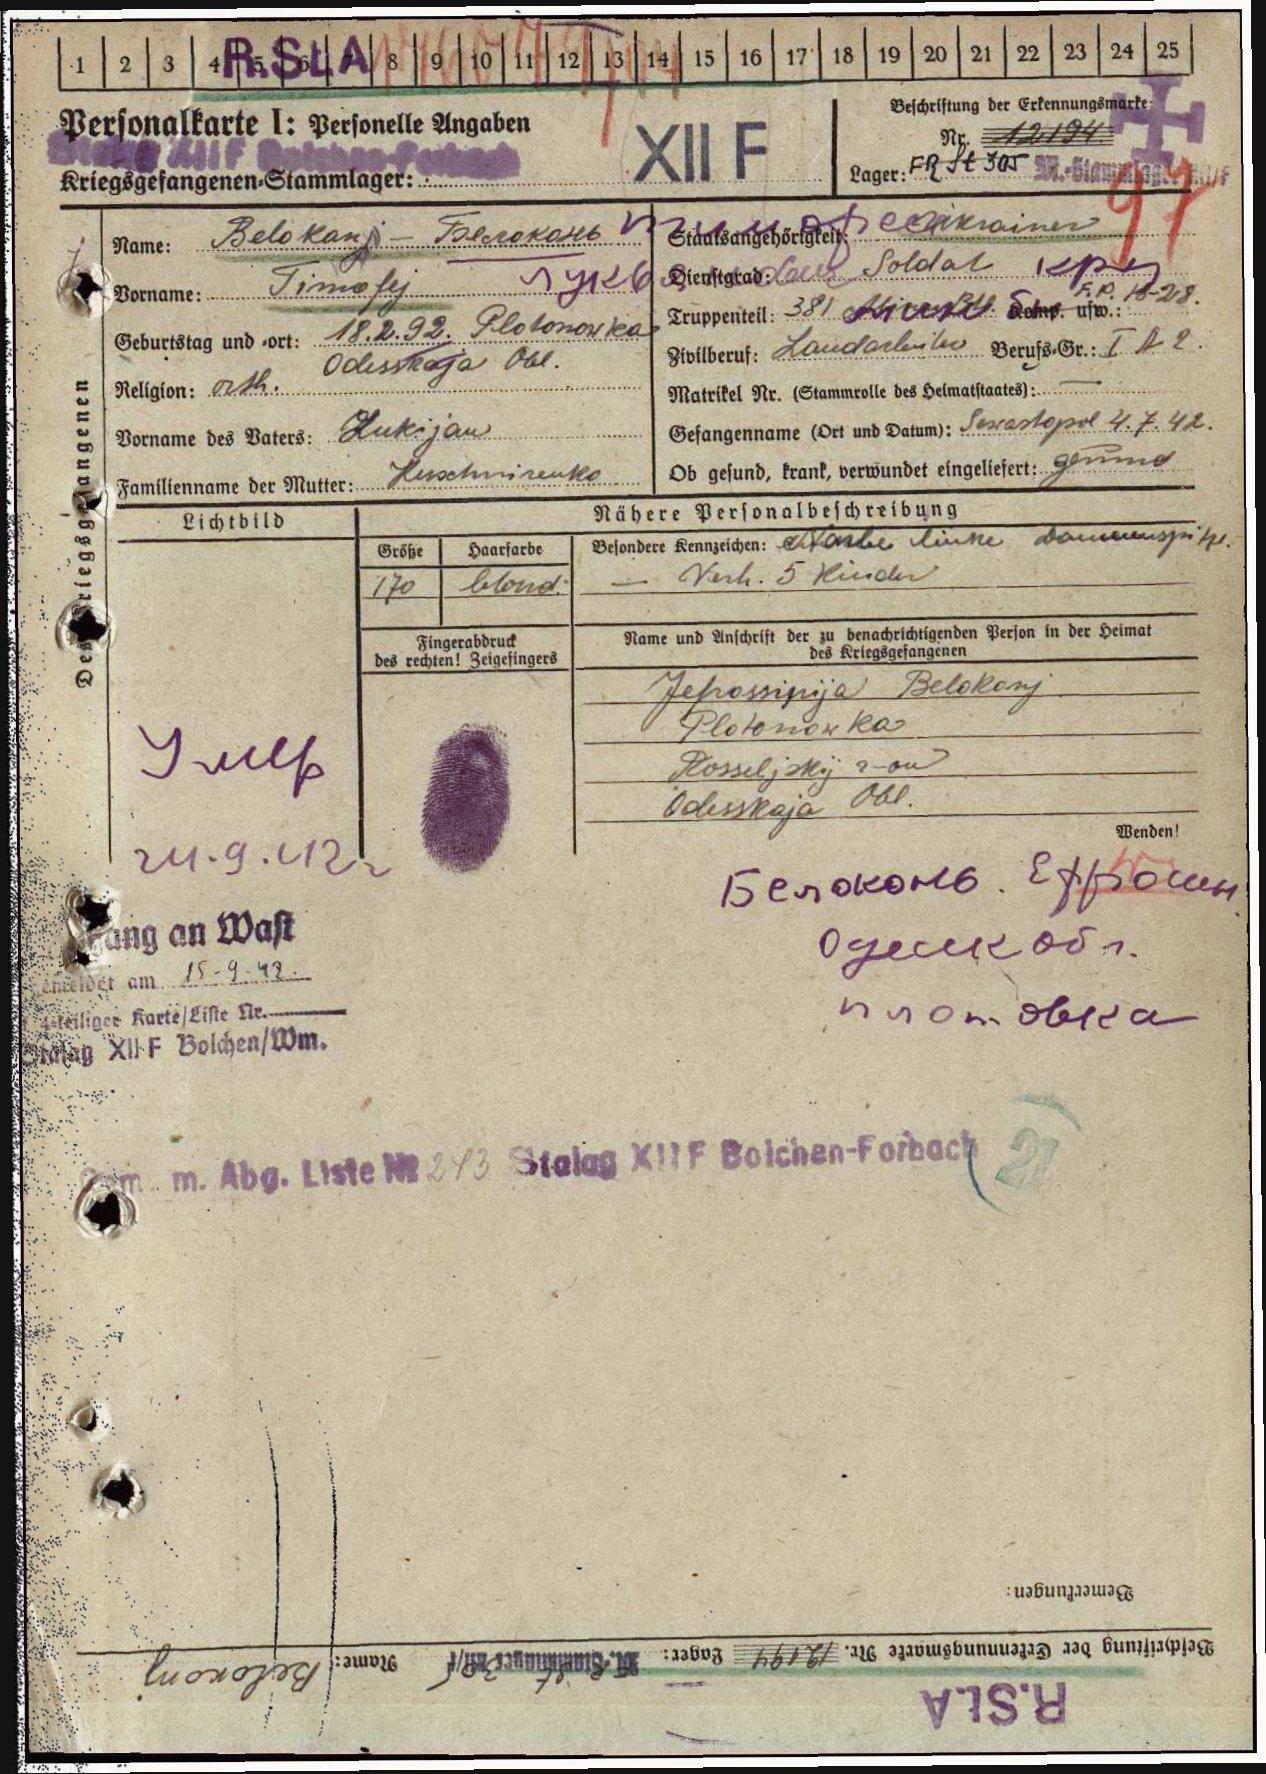 1 2 3 4 5 6 7 8 9 10 11 12 13 14 15 16 17 18 19 20 21 22 23 24 25
R.StA
Personalkarte I: Personelle Angaben
Stalag XII F Bolchen-Forbach
Kriegsgefangenen-Stammlager:
XII F
Beschriftung der Erkennungsmarke
Nr. 12194
Lager: FR St 305 M.-Stammlager XII/F
97
Des Kriegsgefangenen
Name: Belokonj - Белоконь
Тимофей
Vorname: Timofej
Geburtstag und -ort: 18.2.92. Plotonowka
Odesskaja Obl.
Religion: orth.
Vorname des Vaters: Lukijan
Familienname der Mutter: Kuschnirenko
Staatsangehörigkeit: Ukrainer
Dienstgrad: Soldat
Truppenteil: 381 Komp. usw.:
Zivilberuf: Landarbeiter Berufs-Gr.: I A 2
Matrikel Nr. (Stammrolle des Heimatstaates): —
Gefangenname (Ort und Datum): Sewastopol 4.7.42.
Ob gesund, krank, verwundet eingeliefert: gesund
Lichtbild
Nähere Personalbeschreibung
Größe Haarfarbe
170 blond.
Besondere Kennzeichen: Narbe linke Daumenspitze.
— Verh. 5 Kinder
Fingerabdruck
des rechten! Zeigefingers
Name und Anschrift der zu benachrichtigenden Person in der Heimat
des Kriegsgefangenen
Jefrossinija Belokonj
Plotonowka
Rosseljskij r-on
Odesskaja Obl.
Wenden!
Умер
24.9.42г
Белоконь. Ефросин.
Одесск обл.
платовка
gang an Wast
gemeldet am 15.9.42.
4-teiliger Karte/Liste Nr.
Stalag XII F Bolchen/Wm.
Gem. m. Abg. Liste № 243 Stalag XII F Bolchen-Forbach
21
Bemerkungen:
Beschriftung der Erkennungsmarke Nr. 12194 Lager: M.-Stammlager XII/F Name: Belokonj
R.StA